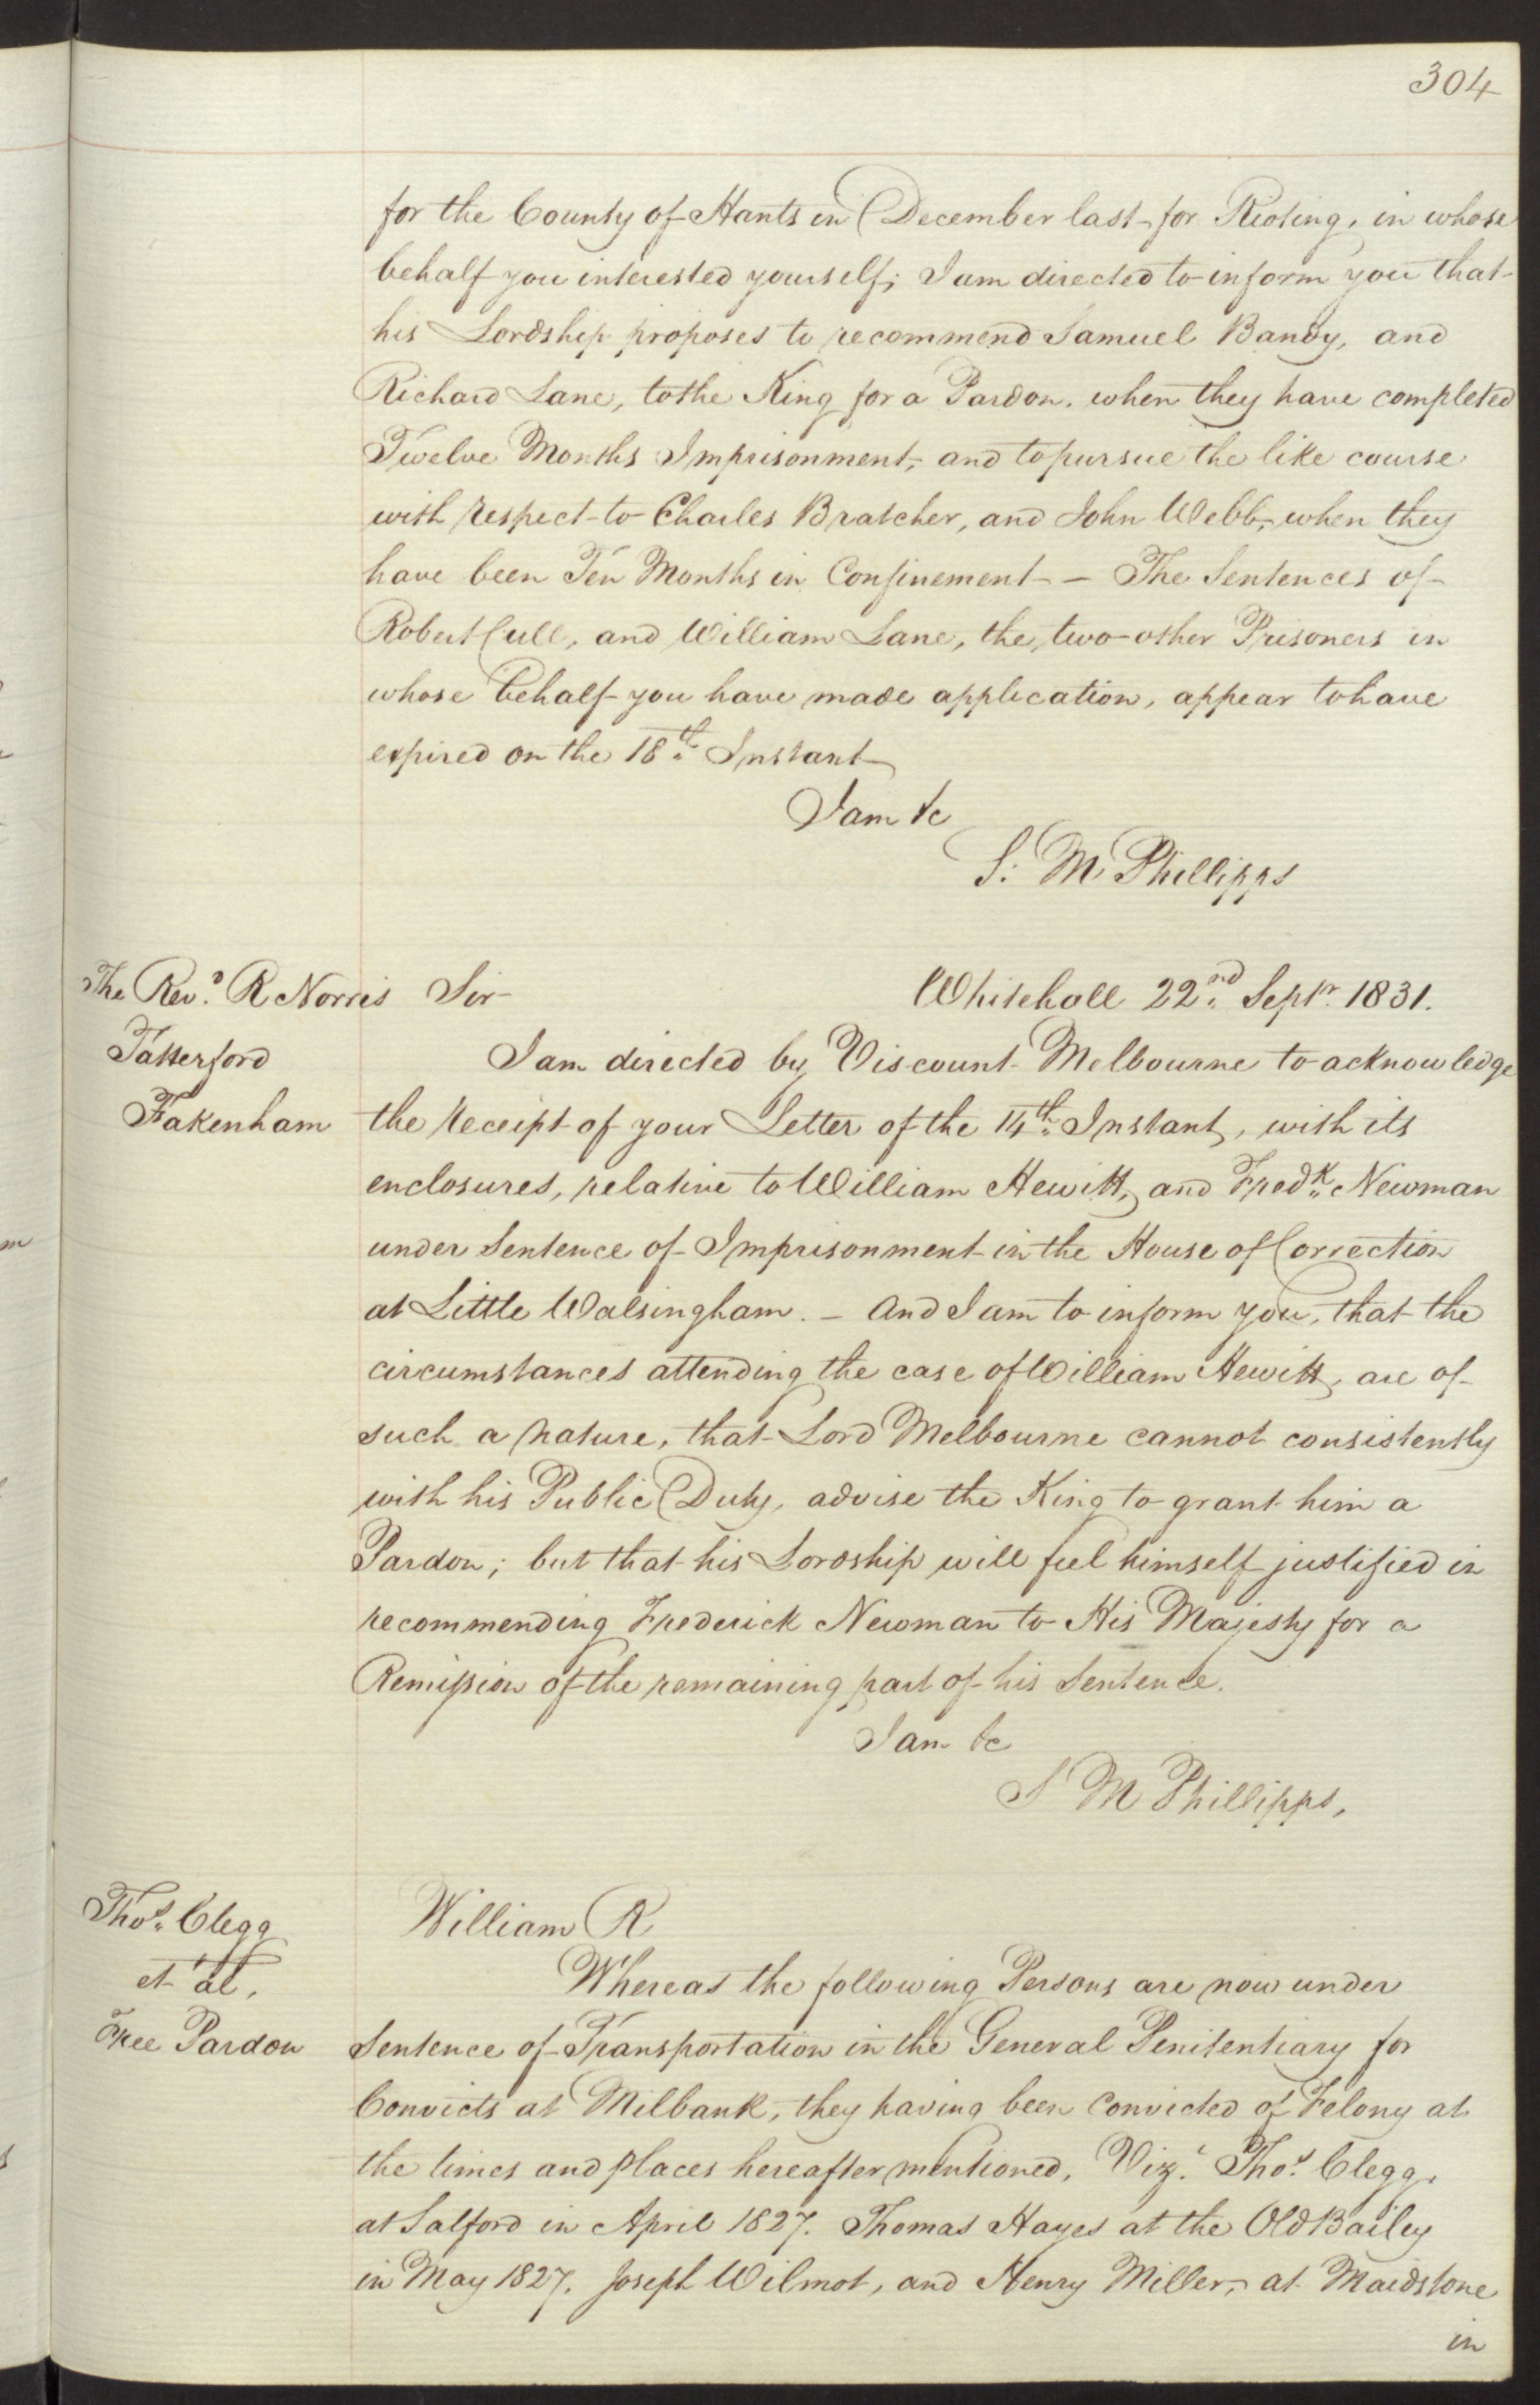 304
for the County of Hants in December last for Rioting, in whose
behalf you interested yourself; I am directed to inform you that
his Lordship proposes to recommend Samuel Bandy, and
Richard Lane, to the King for a Pardon, when they have completed
Twelve Months Imprisonment, and to pursue the like course
with respect to Charles Bratcher, and John Webb, when they
have been Ten Months in Confinement — The Sentences of
Robert Cull, and William Lane, the two other Prisoners in
whose behalf you have made application, appear to have
expired on the 18th Instant
I am &c
S. M. Phillipps
The Revd. R Norris
Tatterford
Fakenham
Sir Whitehall 22nd Septr. 1831.
I am directed by Viscount Melbourne to acknowledge
the receipt of your Letter of the 14th Instant, with its
enclosures, relative to William Hewitt, and Fredk. Newman
under Sentence of Imprisonment in the House of Correction
at Little Walsingham. — And I am to inform you, that the
circumstances attending the case of William Hewitt, are of
such a nature, that Lord Melbourne cannot consistently
with his Public Duty, advise the King to grant him a
Pardon; but that his Lordship will feel himself justified in
recommending Frederick Newman to His Majesty for a
Remission of the remaining part of his Sentence.
I am &c
S M Phillipps,
Thos. Clegg
et al,
Free Pardon
William R
Whereas the following Persons are now under
Sentence of Transportation in the General Penitentiary for
Convicts at Milbank, they having been convicted of Felony at
the times and places hereafter mentioned, Vizt. Thos. Clegg,
at Salford in April 1827. Thomas Hayes at the Old Bailey
in May 1827. Joseph Wilmot, and Henry Miller, at Maidstone
in